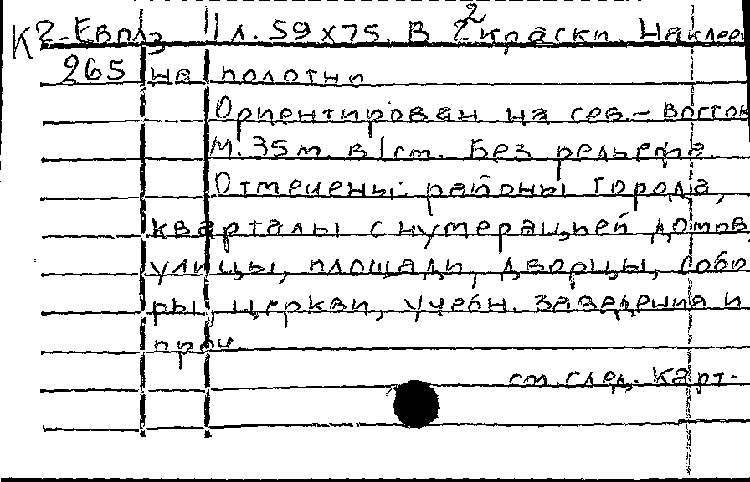 К2-Евп/з 1 л. 59 х 75. В 2 краски. Наклее
265 на полотни
Ориентирован на сев.-восток
М. 35 м. в 1 см. Без рельефа.
Отмечены: районы города,
кварталы с нумерацией домов,
улицы, площади, дворцы, собо
ры, церкви, учебн. заведения и
проч.
см. след. карт.